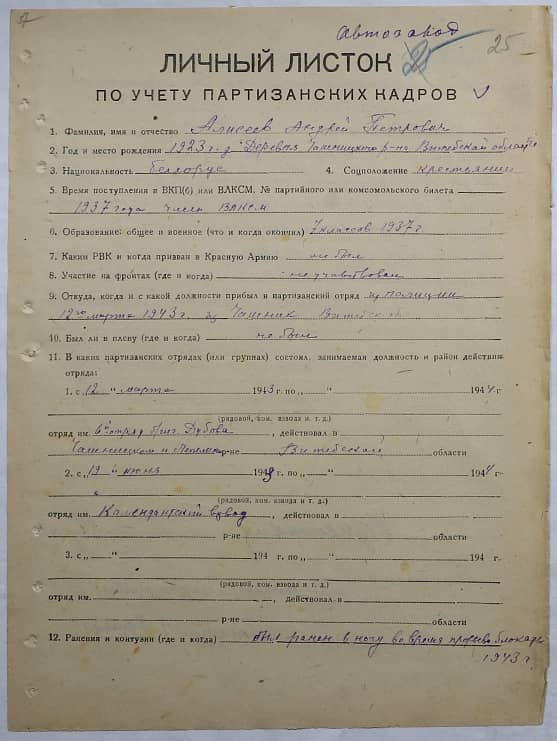 57
Автозавод
25 25
ЛИЧНЫЙ ЛИСТОК
ПО УЧЕТУ ПАРТИЗАНСКИХ КАДРОВ
1. Фамилия, имя и отчество Алисеев Андрей Петрович
2. Год и место рождения 1923 г. д. Деревья Чашницкого р-на Витебской области
3. Национальность белорус 4. Соцположение крестьянин
5. Время поступления в ВКП(б) или ВЛКСМ, № партийного или комсомольского билета
1937 года член ВЛКСМ
6. Образование: общее и военное (что и когда окончил) 7 классов 1937 г.
7. Каким РВК и когда призван в Красную Армию не был
8. Участие на фронтах (где и когда) не участвовал
9. Откуда, когда и с какой должности прибыл в партизанский отряд из полиции
12го марта 1943 г. из Чашник Витебской
10. Был ли в плену (где и когда) не был
11. В каких партизанских отрядах (или группах) состоял, занимаемая должность и район действия
отряда:
1. с „12 " марта 1943 г. по „ " 1944 г
(рядовой, ком. взвода и т. д.)
отряд им. 6й отряд бриг. Дубова, действовал в
Чашницком и р-не Витебской области
2. с „19 " июня 1943 г. по „ " 1944 г
(рядовой, ком. взвода и т. д.)
отряд им. Комендантский взвод, действовал в
р-не области
3. с „ " 194 г. по „ " 194 г
(рядовой, ком. взвода и т. д.)
отряд им. , действовал в
р-не области
12. Ранения и контузии (где и когда) был ранен в ногу во время прорыва блокады
1943 г.